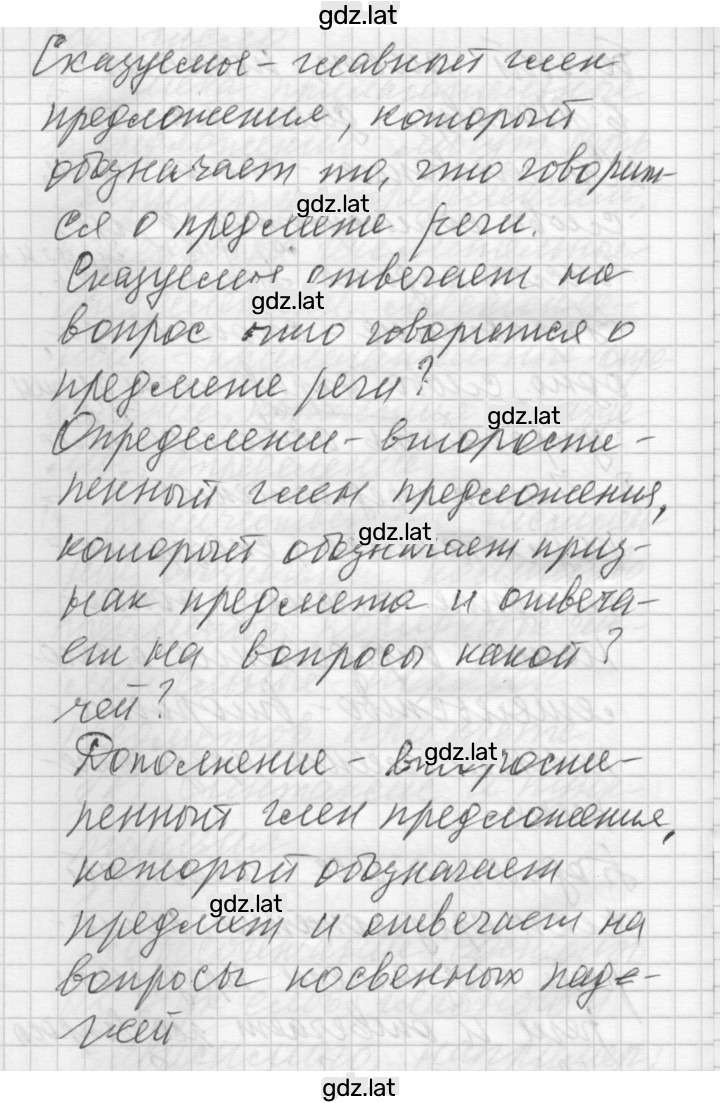 gdz.lat
Сказуемое - главный член
предложения, который
обозначает то, что говорит-
gdz.lat
ся о предмете речи.
Сказуемое отвечает на
gdz.lat
вопрос что говорится о
предмете речи?
gdz.lat
Определение - второсте-
пенный член предложения,
gdz.lat
который обозначает приз-
нак предмета и отвеча-
ет на вопросы какой?
чей?
gdz.lat
Дополнение - второсте-
пенный член предложения,
который обозначает
gdz.lat
предмет и отвечает на
вопросы косвенных паде-
жей
gdz.lat